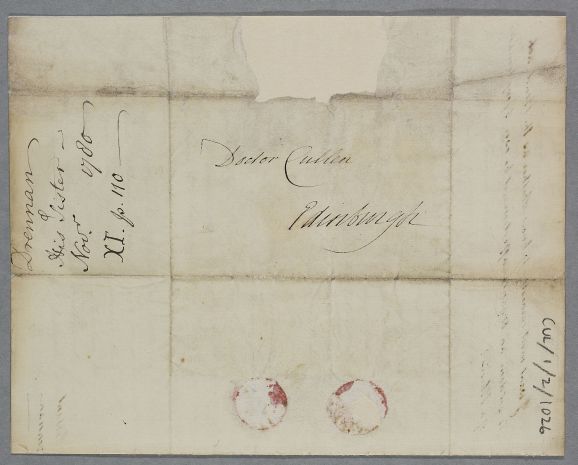 Doctor Cullen
Edinburgh
Drennan
&
His Sister
Novr. 1780
XI. p. 110
CUL/1/2/1026